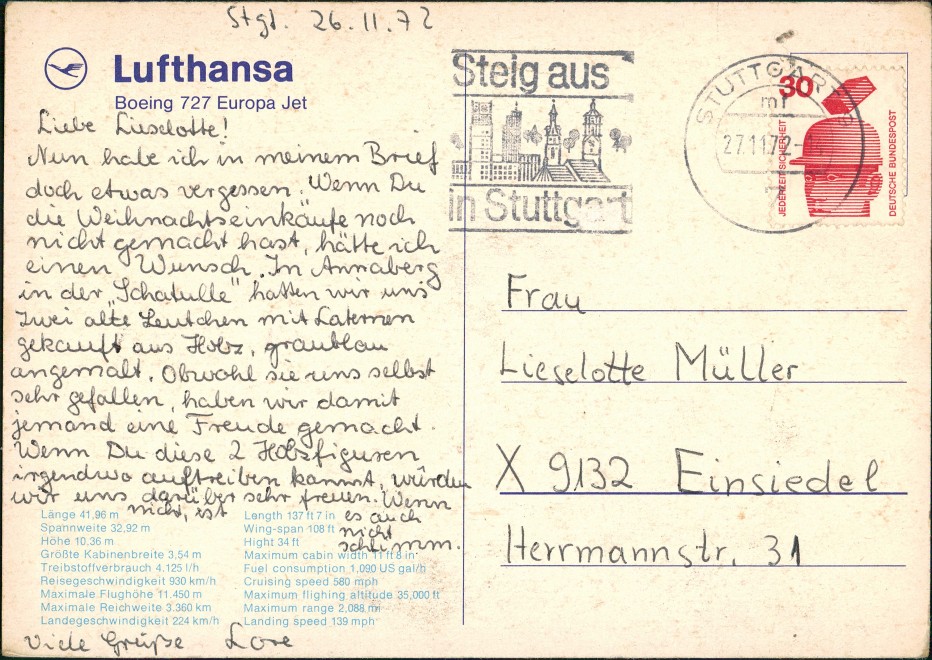 Stgt. 26.11.72
Lufthansa
Boeing 727 Europa Jet
Liebe Lieselotte!
Nun habe ich in meinem Brief
doch etwas vergessen. Wenn Du
die Weihnachtseinkäufe noch
nicht gemacht hast, hätte ich
einen Wunsch. In Annaberg
in der „Schatulle" hatten wir uns
zwei alte Leutchen mit Laternen
gekauft aus Holz, graublau
angemalt. Obwohl sie uns selbst
sehr gefallen, haben wir damit
jemand eine Freude gemacht.
Wenn Du diese 2 Holzfiguren
irgendwo auftreiben kannst, würden
wir uns darüber sehr freuen. Wenn
nicht, ist es auch
nicht
schlimm.
Länge 41,96 m
Spannweite 32,92 m
Höhe 10,36 m
Größte Kabinenbreite 3,54 m
Treibstoffverbrauch 4.125 l/h
Reisegeschwindigkeit 930 km/h
Maximale Flughöhe 11.450 m
Maximale Reichweite 3.360 km
Landegeschwindigkeit 224 km/h
Length 137 ft 7 in
Wing-span 108 ft
Hight 34 ft
Maximum cabin width 11 ft 8 in
Fuel consumption 1,090 US gal/h
Cruising speed 580 mph
Maximum flighing altitude 35,000 ft
Maximum range 2,088 mi
Landing speed 139 mph
Viele Grüße Lore
Steig aus
in Stuttgart
STUTTGART
27.11.72
30
JEDERZEIT SICHERHEIT
DEUTSCHE BUNDESPOST
Frau
Lieselotte Müller
X 9132 Einsiedel
Herrmannstr. 31